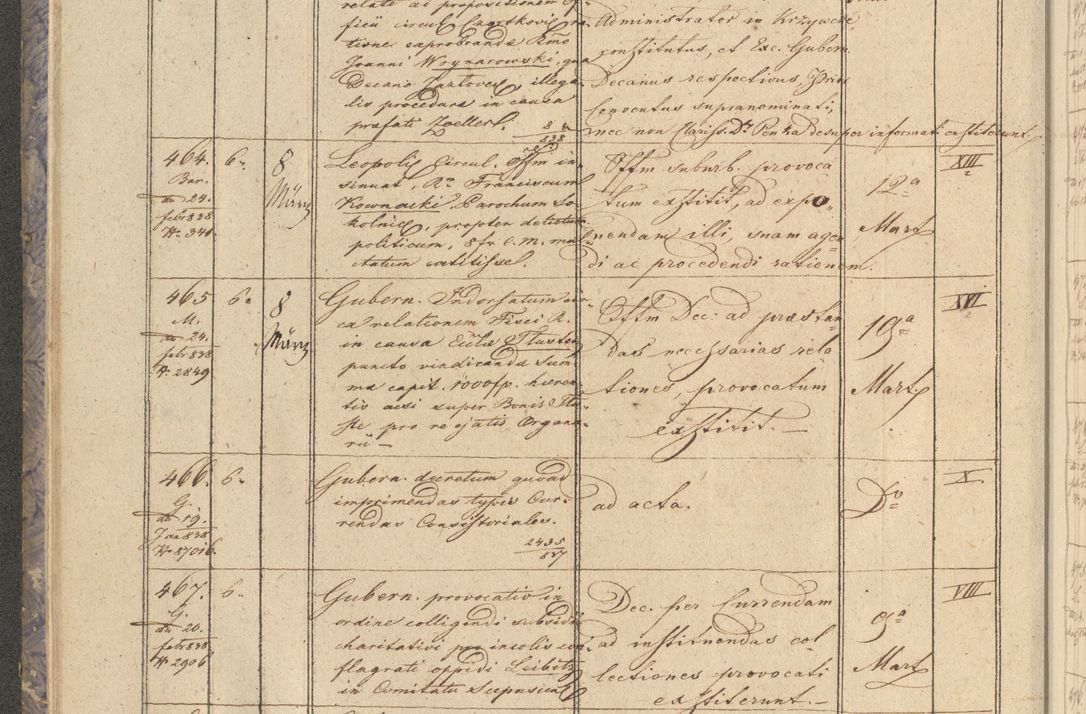 relate ad propositionem of
ficii circul. Czortkovie. ra
tione exprobrandæ Rmo
Joanni Woynarowski, qua
Decano illega
lis procedura in causa
præfati Zoellerl.
Administrator in Krzywcze
constitutus, et Exc. Gubern.
Decanus respectivus,
Conventus supranominati,
nec non Clariss. D. desuper informati exstiterunt
464.
Bar.
du 24.
febr 838
N 341.
6a
8
März
Leopolis Circul. Offm in-
sinuat, Rm Franciscum
Kownacki, Parochum So-
kolnic, propter delictum
politicum, 8 fr. C. M. mul-
ctatum extitisse.
Offm suburb. provoca
tum exstitit, ad expo-
nendam illi, suam agen
di ac procedendi rationem.
12a
Mart
XIII
465
M.
du 24.
febr 838
N. 2849
6a
8
März
Gubern. Indorsatum cir-
ca relationem Fisci R.
in causa Eccliæ Tłuste,
puncto vindicandæ sum
mæ capit. 1000 fp. hæren-
tis acsi super Bonis Tłu-
ste pro reejatis Organa-
rii —
Offm Dec: ad præstan
das necessarias rela
tiones, provocatum
exstitit. —
19a
Mart
XVI
466.
G.
du 19.
Jan 838
N. 87016.
6a
Gubern. decretum quoad
imprimendas typis Cur-
rendas Consistoriales.
2435
837
ad acta.
Do
X.
467.
G.
du 20.
febr 838
N 2906
6a
Gubern. provocatio in
ordine colligendi subsidii
charitativi pro incolis con-
flagrati oppidi Leibitz
in Comitatu Scepusien
Dec. per Currendam
ad instituendas col
lectiones provocati
exstiterunt. —
9a
Mart
VIII